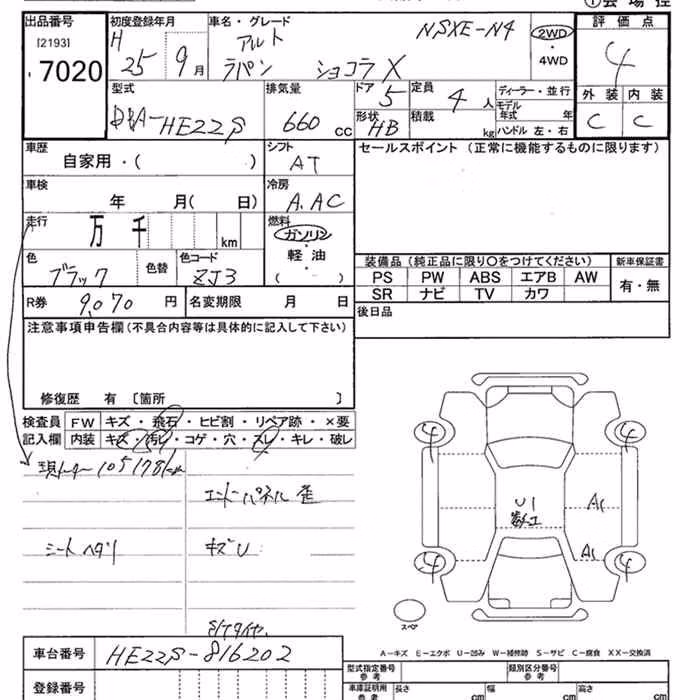 出品番号
[2193]
7020
初度登録年月
H
25 9月
車名・グレード
NSXE-N4
アルト
ラパン ショコラ X
2WD
・
4WD
評価点
4
外装 内装
C C
型式
DBA-HE22S
排気量
660 cc
ドア 5
形状 HB
定員 4 人
積載 kg
ディーラー・並行
モデル
年式 年
ハンドル 左・右
車歴
自家用・( )
シフト
AT
セールスポイント (正常に機能するものに限ります)
車検
年 月( 日)
冷房
A.AC
走行
万 千 km
燃料
ガソリン
・
軽油
( )
色
ブラック
色替
色コード
ZJ3
装備品 (純正品に限り〇をつけてください)
新車保証書
PS PW ABS エアB AW
SR ナビ TV カワ
有・無
R券 9,070 円
名変期限 月 日
後日品
注意事項申告欄 (不具合内容等は具体的に記入して下さい)
修復歴 有 〔箇所 〕
検査員
記入欄
FW キズ・飛石・ヒビ割・リペア跡・×要
内装 キズ・汚レ・コゲ・穴・スレ・キレ・破レ
現メーター105178km
エンドパネル 歪
シートヘタリ
キズU
4 4
U1
A1
A1
4 4
スペア
A-キズ E-エクボ U-凹み W-補修跡 S-サビ C-腐食 XX-交換済
S/Tタイヤ
車台番号
HE22S-816202
登録番号
型式指定番号
参考
類別区分番号
参考
車庫証明用
参考
長さ cm
幅 cm
高さ cm